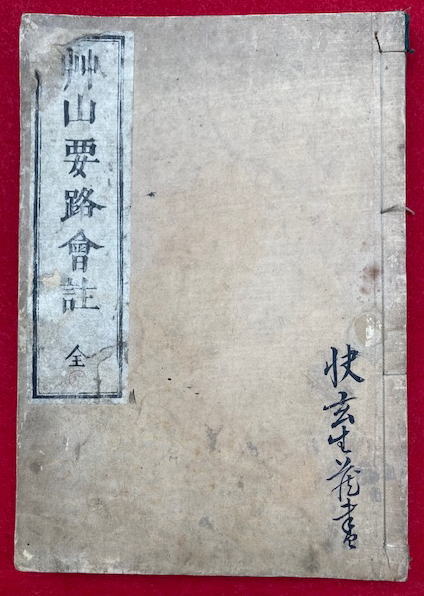 艸山要路會註
全
快玄生蔵書